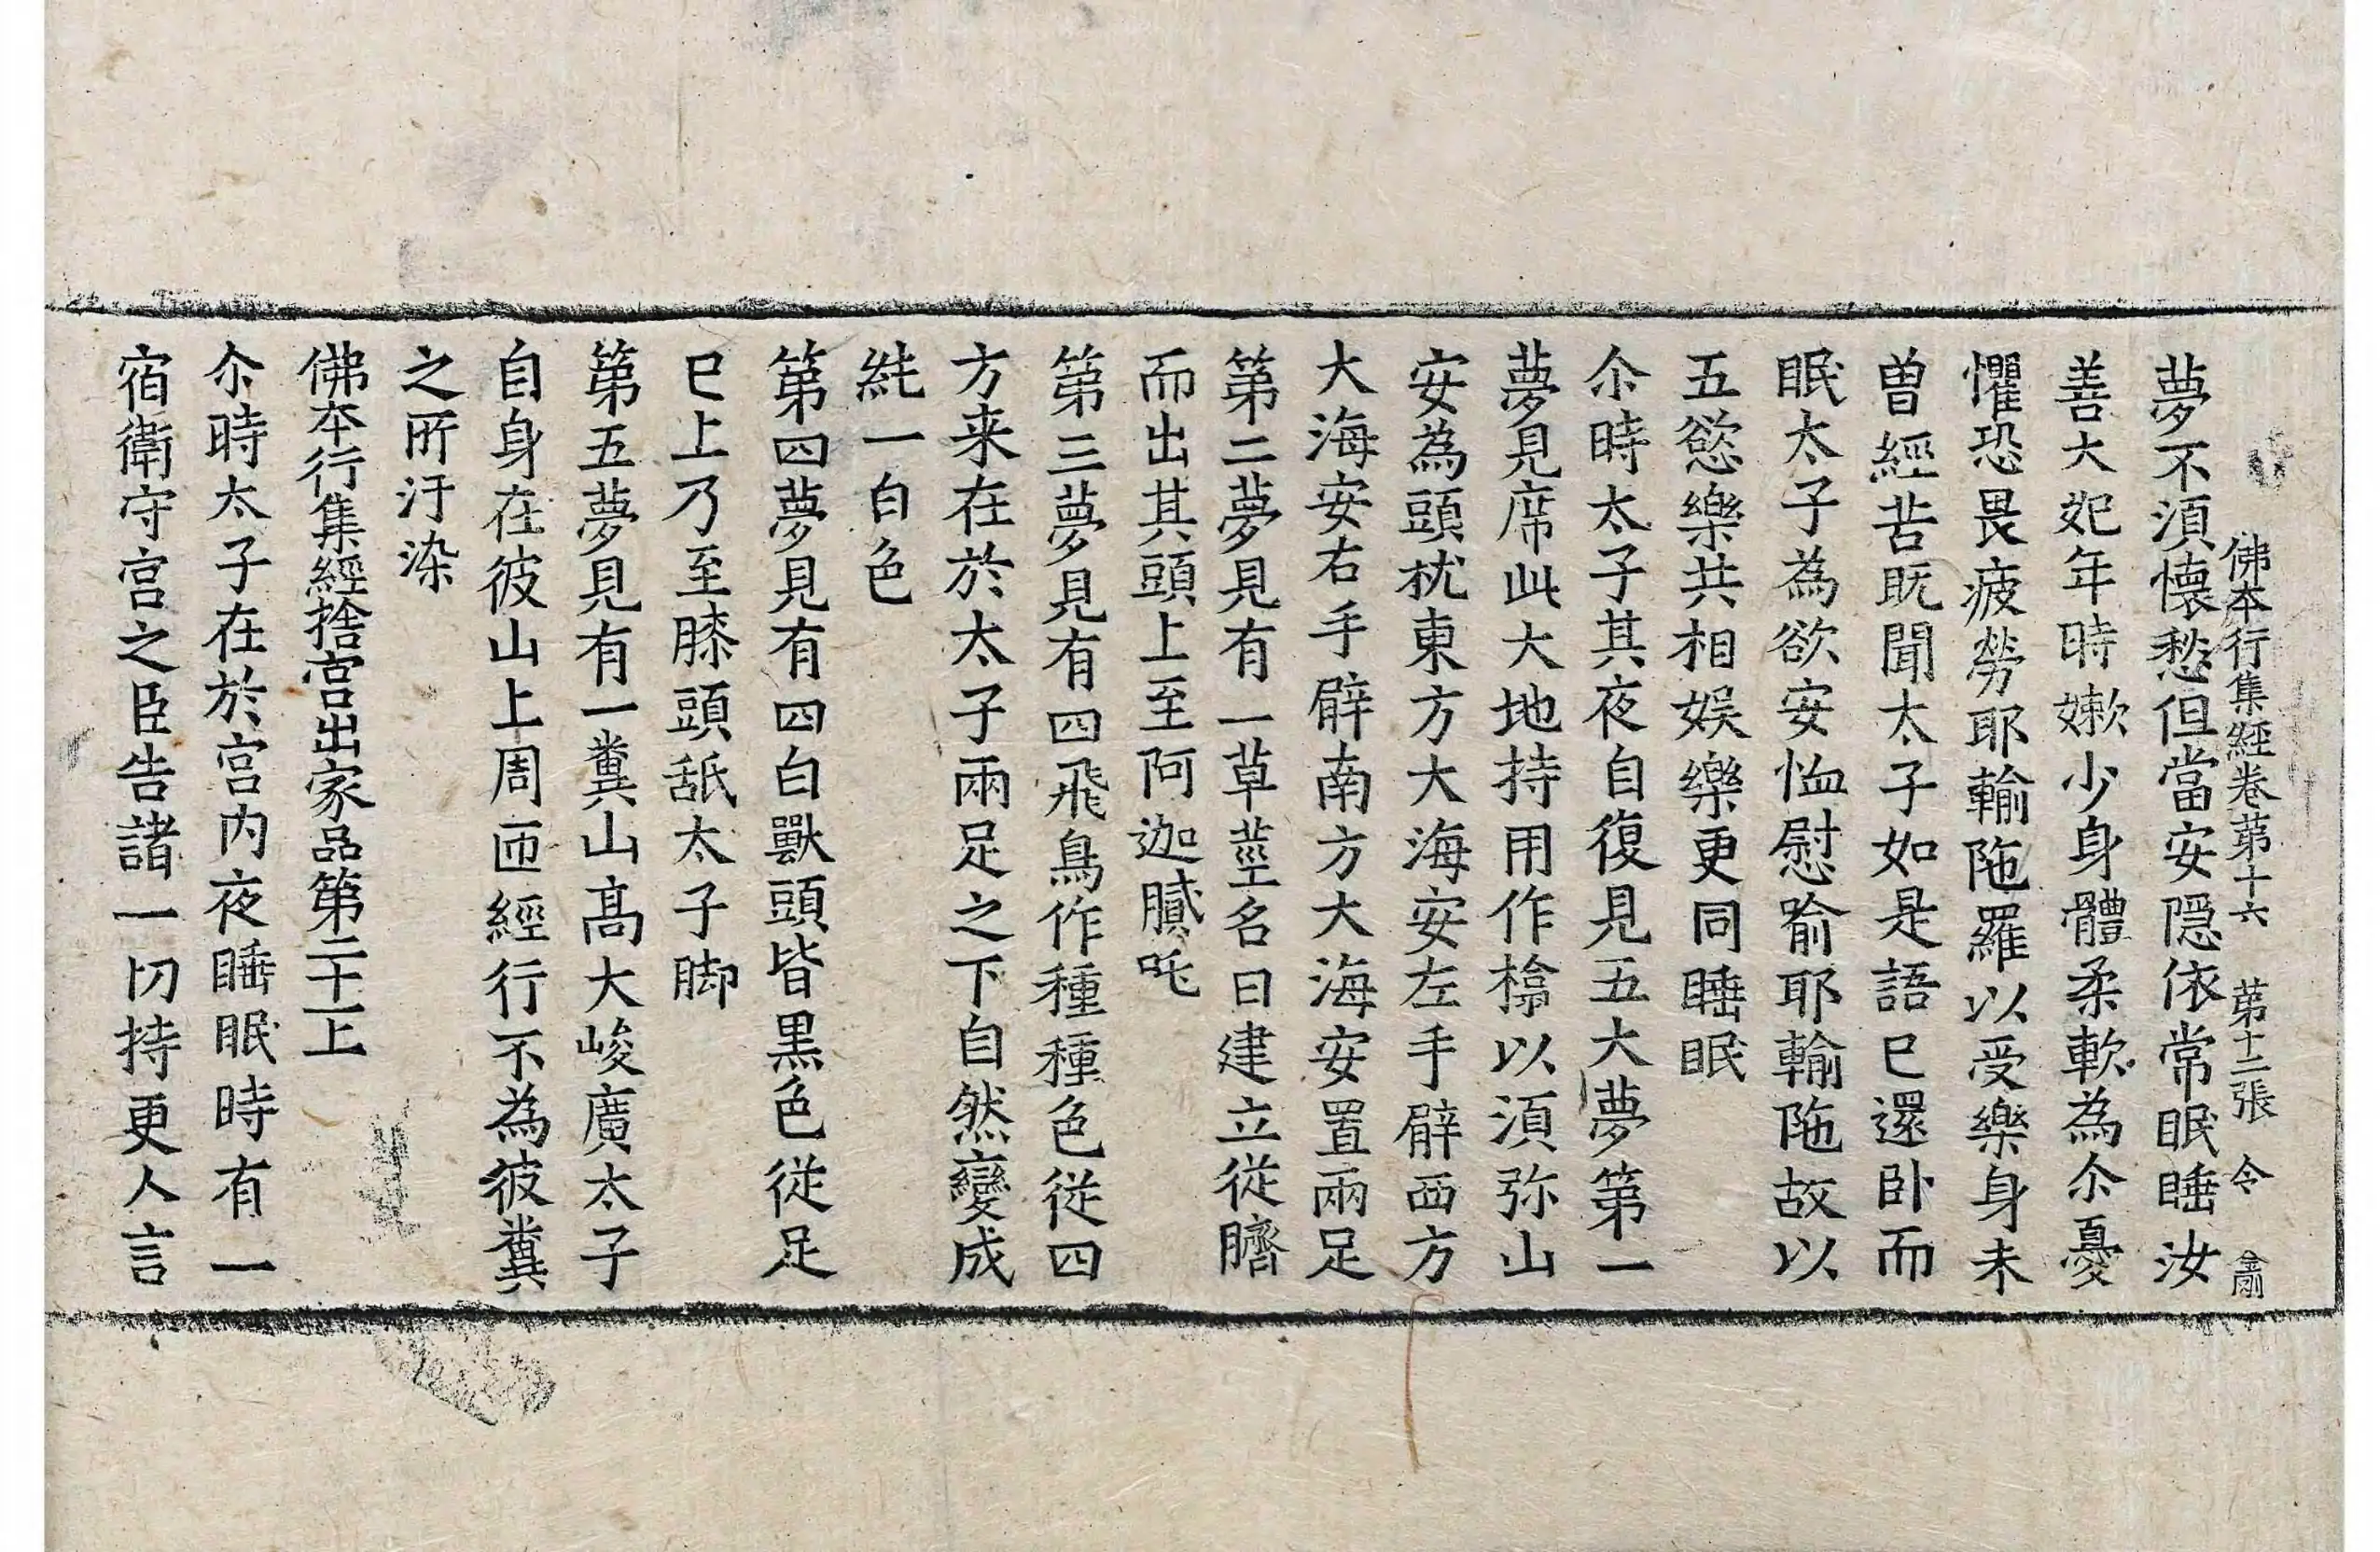 佛本行集經卷第十六 第十二張 令
夢不湏懷愁但當安隱依常眠睡汝
善大妃年時嫰少身體柔軟為尒憂
懼恐畏疲勞耶輸陁羅以受樂身未
曽經苦既聞太子如是語已還卧而
眠太子為欲安恤慰喻耶輸陁故以
五慾樂共相娛樂更同睡眠
尒時太子其夜自復見五大夢第一
夢見席此大地持用作㯓以湏弥山
安為頭枕東方大海安左手臂西方
大海安右手臂南方大海安置兩足
第二夢見有一草莖名曰建立從臍
而出其頭上至阿迦膩吒
第三夢見有四飛鳥作種種色從四
方来在於太子兩足之下自然變成
純一白色
第四夢見有四白獸頭皆黒色從足
已上乃至膝頭舐太子脚
第五夢見有一糞山髙大峻廣太子
自身在彼山上周匝經行不為彼糞
之所汙染
佛本行集經捨宫出家品第二十一上
尒時太子在於宫内夜睡眠時有一
宿衛守宫之臣告諸一切持更人言